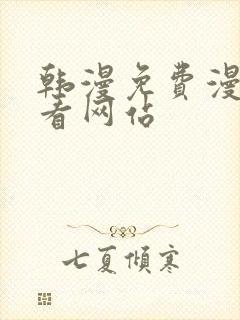 韩漫免费漫
看网站
七夏倾寒